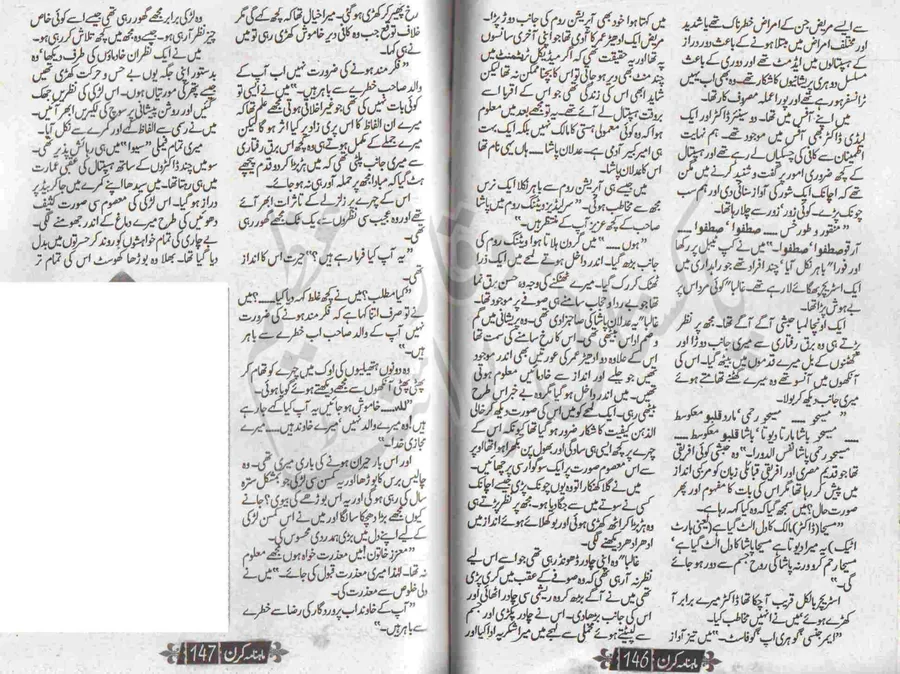 سے ایسے مریض جن کے امراض خطرناک تھے یا شدید
اور مختلف امراض میں مبتلا ہونے کے باعث دور دراز
کے ہسپتالوں میں ایڈمٹ تھے اور دوری کے باعث
مسلسل دوہری پریشانیوں کا شکار تھے وہ بھی اب یہیں
ٹرانسفر ہو رہے تھے اور پورا عملہ مصروف کار تھا۔
میں اپنے آفس میں تھا۔ دو سینئر ڈاکٹر اور ایک
لیڈی ڈاکٹر بھی آفس میں موجود تھے۔ ہم نہایت
اطمینان سے کافی کی چسکیاں لے رہے تھے اور ہسپتال
کے ضروری امور پر گفت و شنید کرنے میں مگن
تھے کہ اچانک ایک شور کی آواز سنائی دی اور ہم سب
چونک پڑے۔ کوئی زور زور سے چلا رہا تھا۔
اور فورا" باہر نکل آیا' چند افراد تھے جو راہداری میں
ایک اسٹریچر بھگائے لا رہے تھے۔ غالبا" کوئی مرد اس پر
بے ہوش پڑا تھا۔
ایک اونچا لمبا حبشی آگے آگے تھا۔ مجھ پر نظر
پڑتے ہی وہ برق رفتاری سے میری جانب دوڑا اور
گھٹنوں کے بل میرے قدموں میں بیٹھ گیا۔ اس کی
آنکھوں میں آنسو تھے وہ میرے گھٹنے تھامتے ہوئے
میری جانب دیکھ کر بولا۔
تھا جو قدیم مصری اور افریقی قبائلی زبان کو مرکزی انداز
میں پیش کر رہا تھا مگر اس کی بات کا مفہوم اور پھر
صورت حال؟ میں سمجھ گیا کہ وہ کیا کہہ رہا ہے۔
"مسیحا (ڈاکٹر) مالک کا دل الٹ گیا ہے (یعنی ہارٹ
اٹیک) یہ میرا دیوتا ہے مسیحا پاشا کا دل الٹ گیا ہے'
مسیحا رحم کرو ورنہ پاشا کی روح جسم سے دور ہو جائے
گی۔"
اسٹریچر بالکل قریب آ چکا تھا ڈاکٹر میرے برابر آ
کھڑے ہوئے' میں نے انہیں مخاطب کیا۔
"ایمرجنسی' گو ہری اپ' گو فاسٹ۔" میں تیز آواز
146 ماہنامہ کرن
میں کہتا ہوا خود بھی آپریشن روم کی جانب دوڑ پڑا۔
مریض ایک ادھیڑ عمر کا آدمی تھا جو اپنی آخری سانسوں
پہ تھا اور یہ حقیقت تھی کہ اگر میڈیکل ٹریٹمنٹ میں
چند منٹ بھی دیر ہو جاتی تو اس کا بچنا ممکن نہ تھا لیکن
شاید ابھی اس کی زندگی تھی جو اس کے اقربا اسے
بروقت ہسپتال لے آئے تھے۔ یہ تو مجھے بعد میں معلوم
ہوا کہ وہ کوئی معمولی ہستی کا مالک نہیں بلکہ ایک بہت
ہی امیر کبیر آدمی ہے۔ عدلان پاشا..... ہاں یہی نام تھا
اس کا عدلان پاشا۔
میں جیسے ہی آپریشن روم سے باہر نکلا ایک نرس
مجھ سے مخاطب ہوئی۔ "سر لیڈیز ویٹنگ روم میں پاشا
صاحب کے کچھ عزیز آپ کے منتظر ہیں۔"
"ہوں ....." میں گردن ہلاتا ہوا ویٹنگ روم کی
جانب بڑھ گیا۔ اندر داخل ہوتے ہی میں ایک ذرا
ٹھٹک کر رک گیا۔ میرے ٹھٹکنے کی وجہ وہ حسن برق نما
تھا جو بے پردہ و حجاب سامنے ہی صوفے پر موجود تھا۔
غالبا" یہ عدلان پاشا کی صاحبزادی تھی۔ وہ پریشانی میں گم
صم اداس بیٹھی تھی۔ اس کا رخ سامنے کی سمت تھا
اس کے علاوہ دو ادھیڑ عمر کی عورتیں بھی اندر موجود
تھیں جو حلیے اور انداز سے خادمائیں معلوم ہوتی
تھیں۔ میں اندر داخل ہو گیا مگر وہ بے حس اس طرح
بیٹھی رہی۔ ایک لمحے کو میں اس کی صورت دیکھ کر خالی
الذہن کیفیت کا شکار ضرور ہو گیا تھا کیونکہ اس کے
چہرے پر کچھ ایسی ہی سادگی اور بھول پن بکھرا ہوا تھا اوپر
سے اس معصوم صورت پر ایک سوگواری پرچھائیں۔
میں نے گلا کھنکارا تو وہ یوں چونک پڑی جیسے اچانک
کسی نے سوتے میں سے جگا دیا ہو۔ مجھ پر نظر پڑتے ہی
وہ ہڑبڑا کر اٹھ کھڑی ہوئی اور بوکھلائے ہوئے انداز میں
ادھر ادھر دیکھنے لگی۔
غالبا" وہ اپنی چادر ڈھونڈ رہی تھی جو اسے اس لیے
نظر نہ آ رہی تھی کہ وہ صوفے کے عقب میں گری پڑی
تھی میں نے آگے بڑھ کر وہ ریشمی سی چادر اٹھائی اور
اس کی جانب بڑھا دی۔ اس نے چادر پکڑی اور جسم
سے لپیٹتے ہوئے مخملی سے لہجے میں میرا شکریہ ادا کیا اور
رخ پھیر کر کھڑی ہو گئی۔ میرا خیال تھا کہ کچھ کہے گی مگر
خلاف توقع جب وہ کافی دیر خاموش کھڑی رہی تو میں
نے ہی کہا۔
"فکر مند ہونے کی ضرورت نہیں اب آپ کے
والد صاحب خطرے سے باہر ہیں۔" میں نے ایسی تو
کوئی بات نہیں کی تھی جو غیر اخلاقی ہوتی مجھے علم تھا کہ
میرے ان الفاظ کا اس پری زاد پر کیا اثر ہوگا لیکن
میرے جملے کے مکمل ہوتے ہی وہ کچھ اس برق رفتاری
سے میری جانب پلٹی تھی کہ میں ہڑبڑا کر دو قدم پیچھے
ہٹ گیا کہ مبادا مجھ پر حملہ آور ہی نہ ہو جائے۔
اس کے چہرے پر زلزلے کے تاثرات ابھر آئے
تھے اور وہ عجیب سی نظروں سے یک ٹک مجھے گھور رہی
تھی۔
"یہ آپ کیا فرما رہے ہیں؟" حیرت اس کا انداز
تھی۔
"کیا مطلب؟ میں نے کچھ غلط کہہ دیا کیا.....؟ میں
نے تو صرف اتنا کہا ہے کہ فکر مند ہونے کی ضرورت
نہیں آپ کے والد صاحب اب خطرے سے باہر
ہیں۔"
وہ دونوں ہتھیلیوں کی اوک میں چہرے کو تھام کر
پھٹی پھٹی آنکھوں سے مجھے دیکھتے ہوئے گویا ہوئی۔
"للہ..... خاموش ہو جائیں یہ آپ کیا کہے جا رہے
ہیں! وہ میرے والد نہیں' میرے خاوند ہیں..... میرے
مجازی خدا۔"
اور اس بار حیران ہونے کی باری میری تھی۔ وہ
چالیس برس کا بوڑھا اور یہ کمسن سی لڑکی جو بمشکل سترہ
سال کی رہی ہو گی اور یہ اس بوڑھے کی بیوی؟ جانے
کیوں مجھے بڑا دھچکا سا لگا اور میں نے اس کمسن لڑکی
کے لیے اپنے دل میں بڑی ہمدردی محسوس کی۔
"معزز خاتون! میں معذرت خواہ ہوں مجھے معلوم
نہ تھا۔ لہٰذا میری معذرت قبول کی جائے۔" میں نے
دلی خلوص سے معذرت کی۔
"آپ کے خاوند اب پروردگار کی رضا سے خطرے
سے باہر ہیں۔"
وہ لڑکی برابر مجھے گھور رہی تھی جیسے اسے کوئی خاص
چیز نظر آ رہی ہو۔ جیسے وہ مجھ میں کچھ تلاش کر رہی ہو۔
میں نے ایک نظر ان خادماؤں کی طرف دیکھا' وہ
بدستور اپنی جگہ یوں بے حس و حرکت کھڑی تھیں
جیسے پتھر کی مورتیاں ہوں۔ اس لڑکی کی نظریں جھک
گئیں اور روشن پیشانی پر سوچ کی لکیریں ابھر آئیں۔
میں نے رسمی سے الفاظ کہے اور کمرے سے نکل آیا۔
میری تمام فیملی "سیوا" میں ہی رہائش پذیر تھی۔
سو میں چند ڈاکٹروں کے ساتھ ہسپتال کی عقبی عمارت
میں ہی رہتا تھا۔ میں سیدھا اپنے کمرے میں جا کر بیڈ پر
دراز ہو گیا۔ اس لڑکی کی معصوم سی صورت کثیف
دھوئیں کی طرح میرے دماغ کے اندر جھومنے لگی۔
بے چاری کی تمام خواہشوں کو روند کر حسرتوں میں بدل
دیا گیا تھا۔ بھلا وہ بوڑھا کھوسٹ اس کی تمام تر
147 ماہنامہ کرن